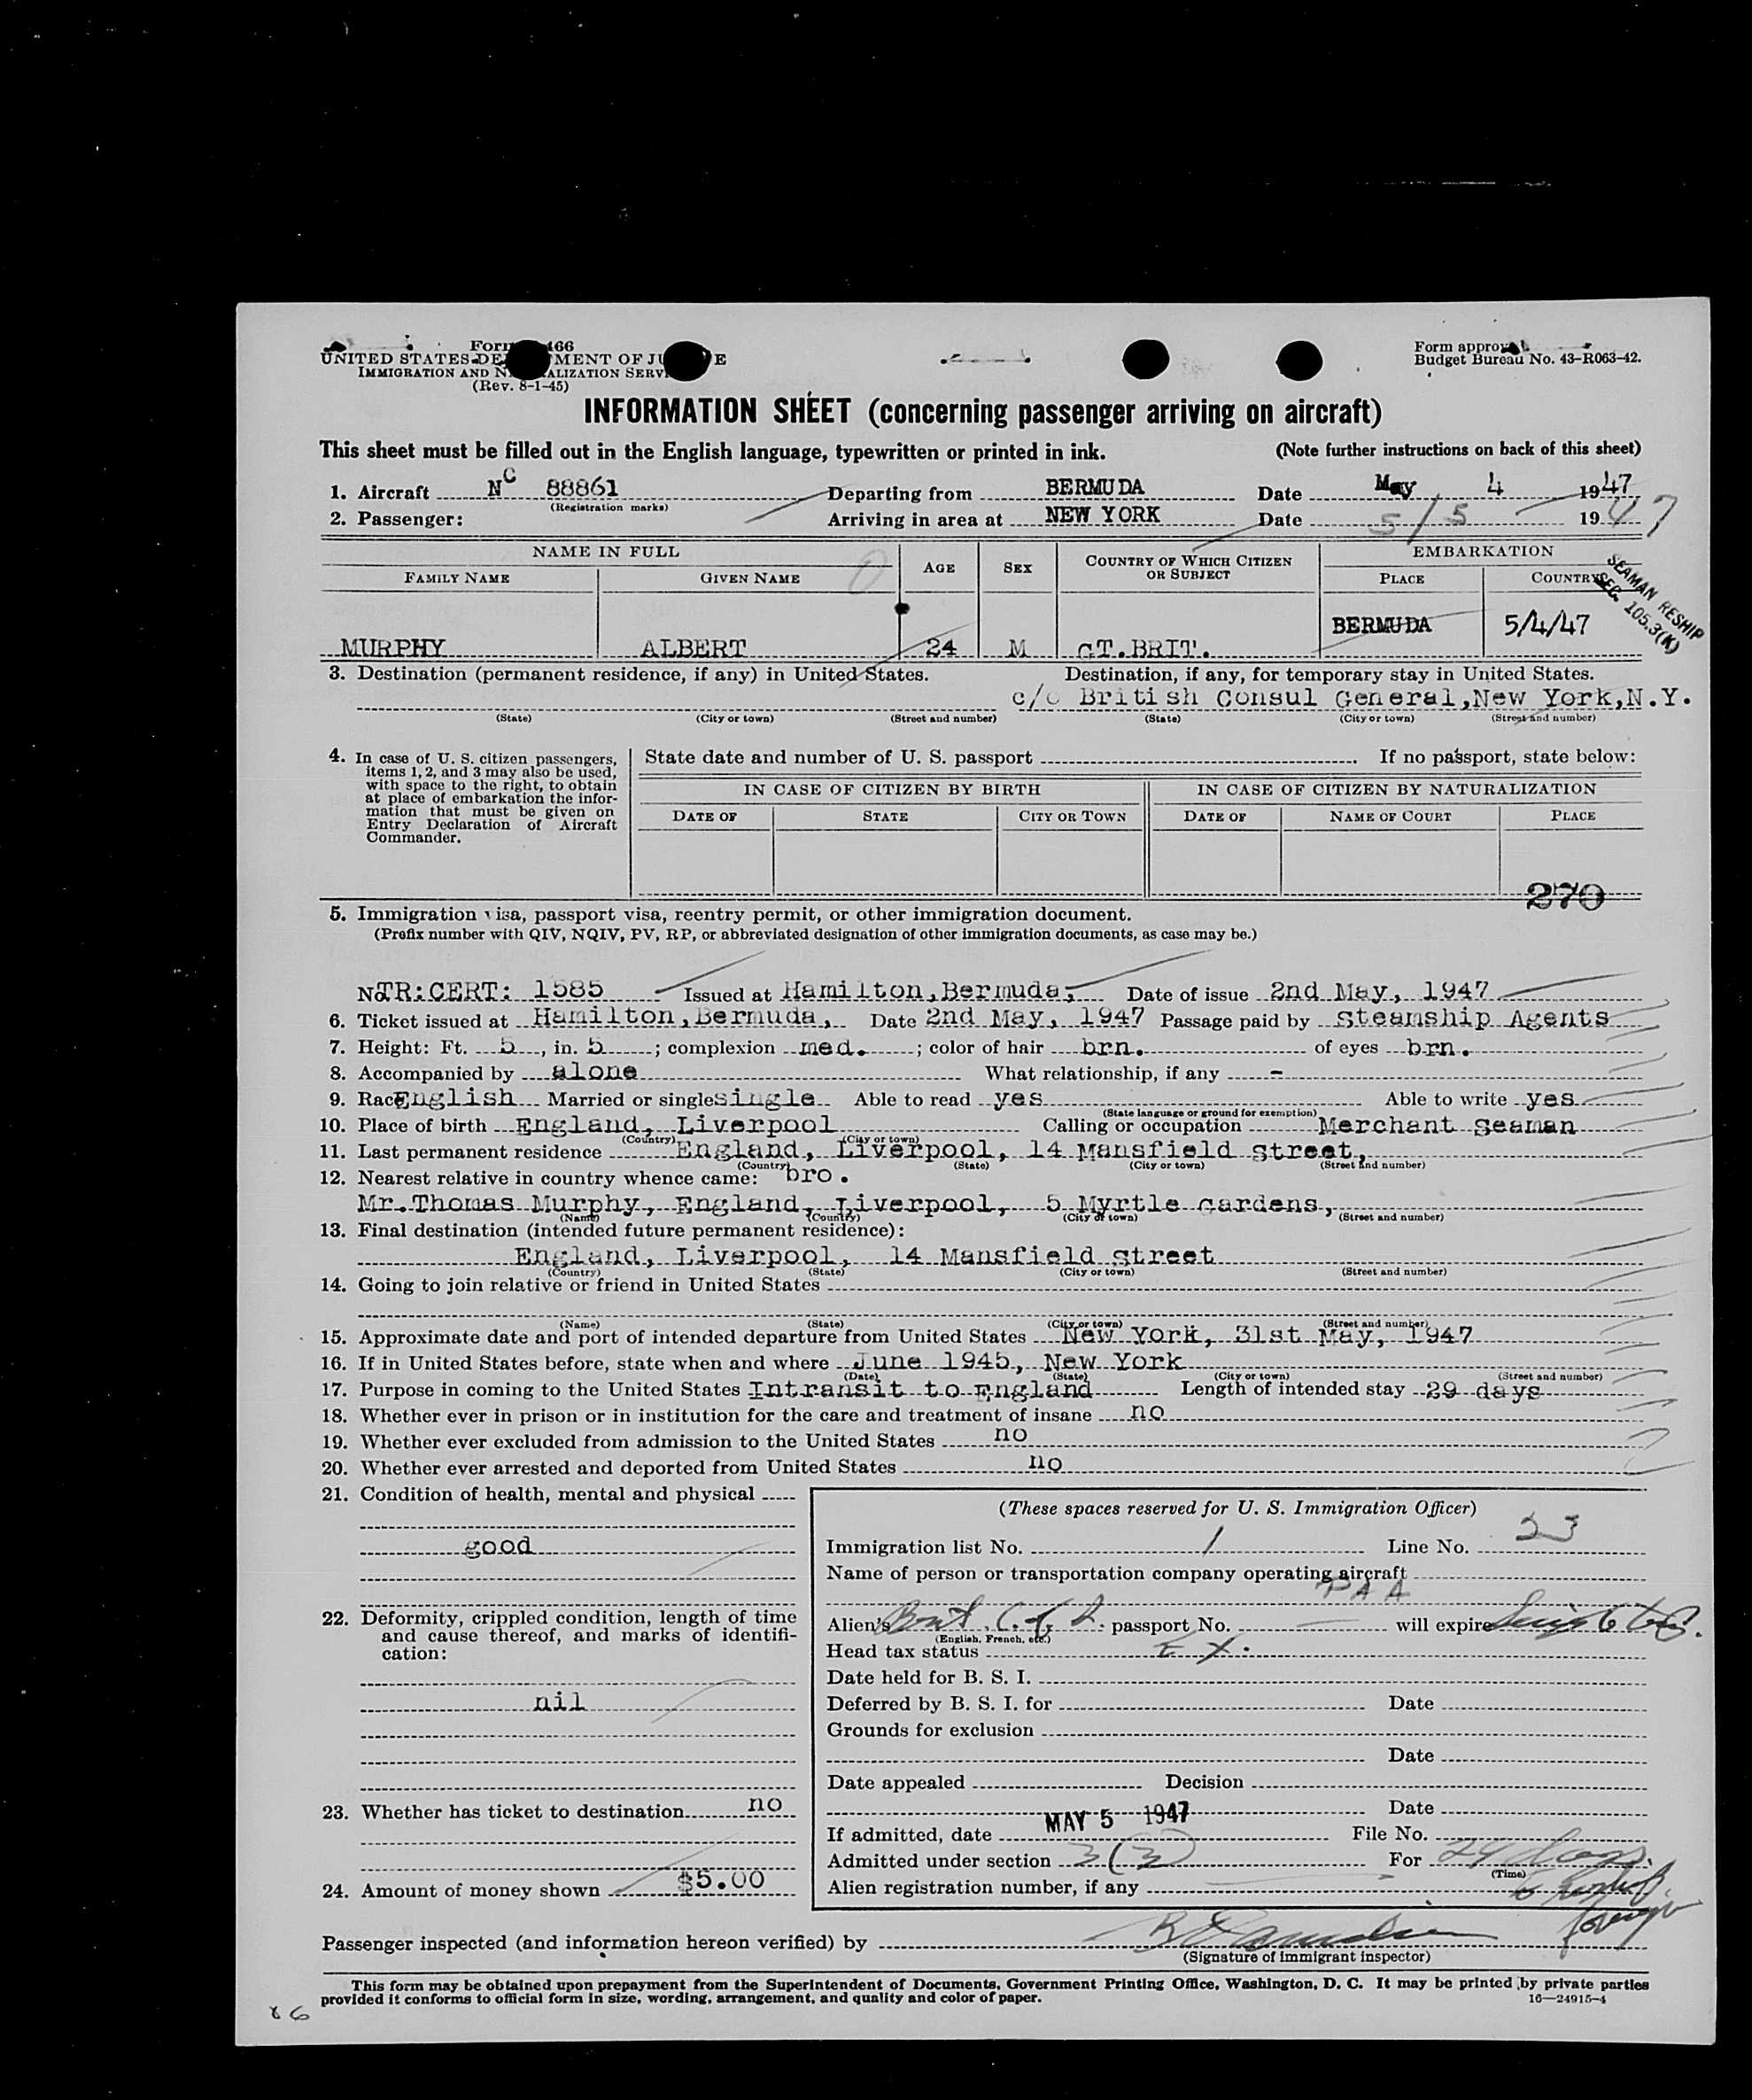 Form 466
UNITED STATES DE MENT OF JU E
IMMIGRATION AND N ALIZATION SERVI
(Rev. 8-1-45)
Form approv
Budget Bureau No. 43-R063-42.
INFORMATION SHEET (concerning passenger arriving on aircraft)
This sheet must be filled out in the English language, typewritten or printed in ink. (Note further instructions on back of this sheet)
1. Aircraft NC 88861 Departing from BERMUDA Date May 4 1947
(Registration marks)
2. Passenger: Arriving in area at NEW YORK Date 5/5 1947
NAME IN FULL AGE SEX COUNTRY OF WHICH CITIZEN OR SUBJECT EMBARKATION
FAMILY NAME GIVEN NAME PLACE COUNTRY
SEAMAN RESHIP
SEC. 105.3(K)
MURPHY ALBERT 24 M GT.BRIT. BERMUDA 5/4/47
3. Destination (permanent residence, if any) in United States. Destination, if any, for temporary stay in United States.
c/o British Consul General,New York,N.Y.
(State) (City or town) (Street and number) (State) (City or town) (Street and number)
4. In case of U. S. citizen passengers, items 1, 2, and 3 may also be used, with space to the right, to obtain at place of embarkation the information that must be given on Entry Declaration of Aircraft Commander.
State date and number of U. S. passport If no passport, state below:
IN CASE OF CITIZEN BY BIRTH IN CASE OF CITIZEN BY NATURALIZATION
DATE OF STATE CITY OR TOWN DATE OF NAME OF COURT PLACE
270
5. Immigration visa, passport visa, reentry permit, or other immigration document.
(Prefix number with QIV, NQIV, PV, RP, or abbreviated designation of other immigration documents, as case may be.)
No TR:CERT: 1585 Issued at Hamilton,Bermuda, Date of issue 2nd May, 1947
6. Ticket issued at Hamilton,Bermuda, Date 2nd May, 1947 Passage paid by Steamship Agents
7. Height: Ft. 5, in. 5; complexion med.; color of hair brn. of eyes brn.
8. Accompanied by alone What relationship, if any -
9. Race English Married or single single Able to read yes Able to write yes
(State language or ground for exemption)
10. Place of birth England, Liverpool Calling or occupation Merchant Seaman
(Country) (City or town)
11. Last permanent residence England, Liverpool, 14 Mansfield Street,
(Country) (State) (City or town) (Street and number)
12. Nearest relative in country whence came: bro.
Mr.Thomas Murphy, England, Liverpool, 5 Myrtle Gardens,
(Name) (Country) (City or town) (Street and number)
13. Final destination (intended future permanent residence):
England, Liverpool, 14 Mansfield Street
(Country) (State) (City or town) (Street and number)
14. Going to join relative or friend in United States
(Name) (State) (City or town) (Street and number)
15. Approximate date and port of intended departure from United States New York, 31st May, 1947
16. If in United States before, state when and where June 1945, New York
(Date) (State) (City or town) (Street and number)
17. Purpose in coming to the United States Intransit to England Length of intended stay 29 days
18. Whether ever in prison or in institution for the care and treatment of insane no
19. Whether ever excluded from admission to the United States no
20. Whether ever arrested and deported from United States no
21. Condition of health, mental and physical
good
22. Deformity, crippled condition, length of time and cause thereof, and marks of identification:
nil
23. Whether has ticket to destination no
24. Amount of money shown $5.00
(These spaces reserved for U. S. Immigration Officer)
Immigration list No. 1 Line No. 23
Name of person or transportation company operating aircraft
PAA
Alien's passport No. will expire
(English, French, etc.)
Head tax status EX.
Date held for B. S. I.
Deferred by B. S. I. for Date
Grounds for exclusion
Date
Date appealed Decision
Date
If admitted, date MAY 5 1947 File No.
Admitted under section 3(3) For 29 days.
(Time)
Alien registration number, if any
foreign
Passenger inspected (and information hereon verified) by
(Signature of immigrant inspector)
This form may be obtained upon prepayment from the Superintendent of Documents, Government Printing Office, Washington, D. C. It may be printed by private parties
provided it conforms to official form in size, wording, arrangement, and quality and color of paper. 16—24915-4